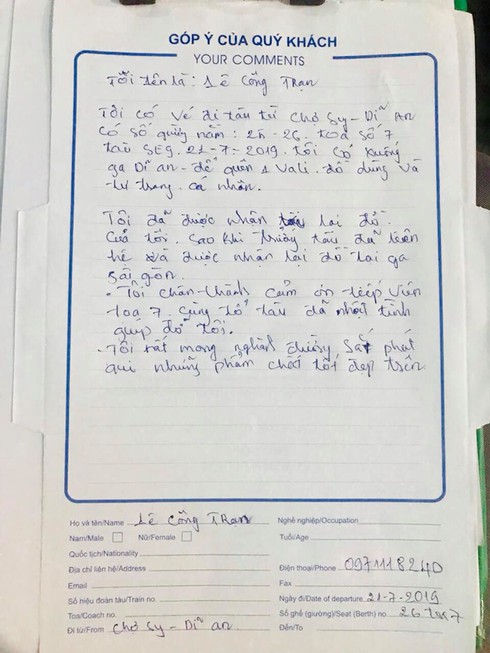 GÓP Ý CỦA QUÝ KHÁCH
YOUR COMMENTS
Tôi tên là: Lê Công Trạn
Tôi có vé đi tàu từ Chợ Sy - Dĩ An
có số giường nằm: 25-26. toa số 7
tàu SE9. 21-7-2019. tôi có xuống
ga Dĩ an - để quên 1 Vali. đồ dùng và
tư trang. cá nhân.
Tôi đã được nhận lại đồ
của tôi. Sao khi trưởng tàu đã liên
hệ và được nhận lại đồ tại ga
Sài gòn.
- Tôi chân thành cảm ơn tiếp viên
toa 7. cùng tổ tàu đã nhiệt tình
giúp đỡ tôi.
- Tôi rất mong nghành đường Sắt phát
qui những phẩm chất tốt đẹp trên.
Họ và tên/Name Lê Công TRạn
Nghề nghiệp/Occupation
Nam/Male Nữ/Female
Tuổi/Age
Quốc tịch/Nationality
Địa chỉ liên hệ/Address
Điện thoại/Phone 0971118240
Email
Fax
Số hiệu đoàn tàu/Train no.
Ngày đi/Date of departure 21-7-2019
Toa/Coach no.
Số ghế (giường)/Seat (Berth) no 26 toa 7
Đi từ/From Chợ Sy - Dĩ an
Đến/To